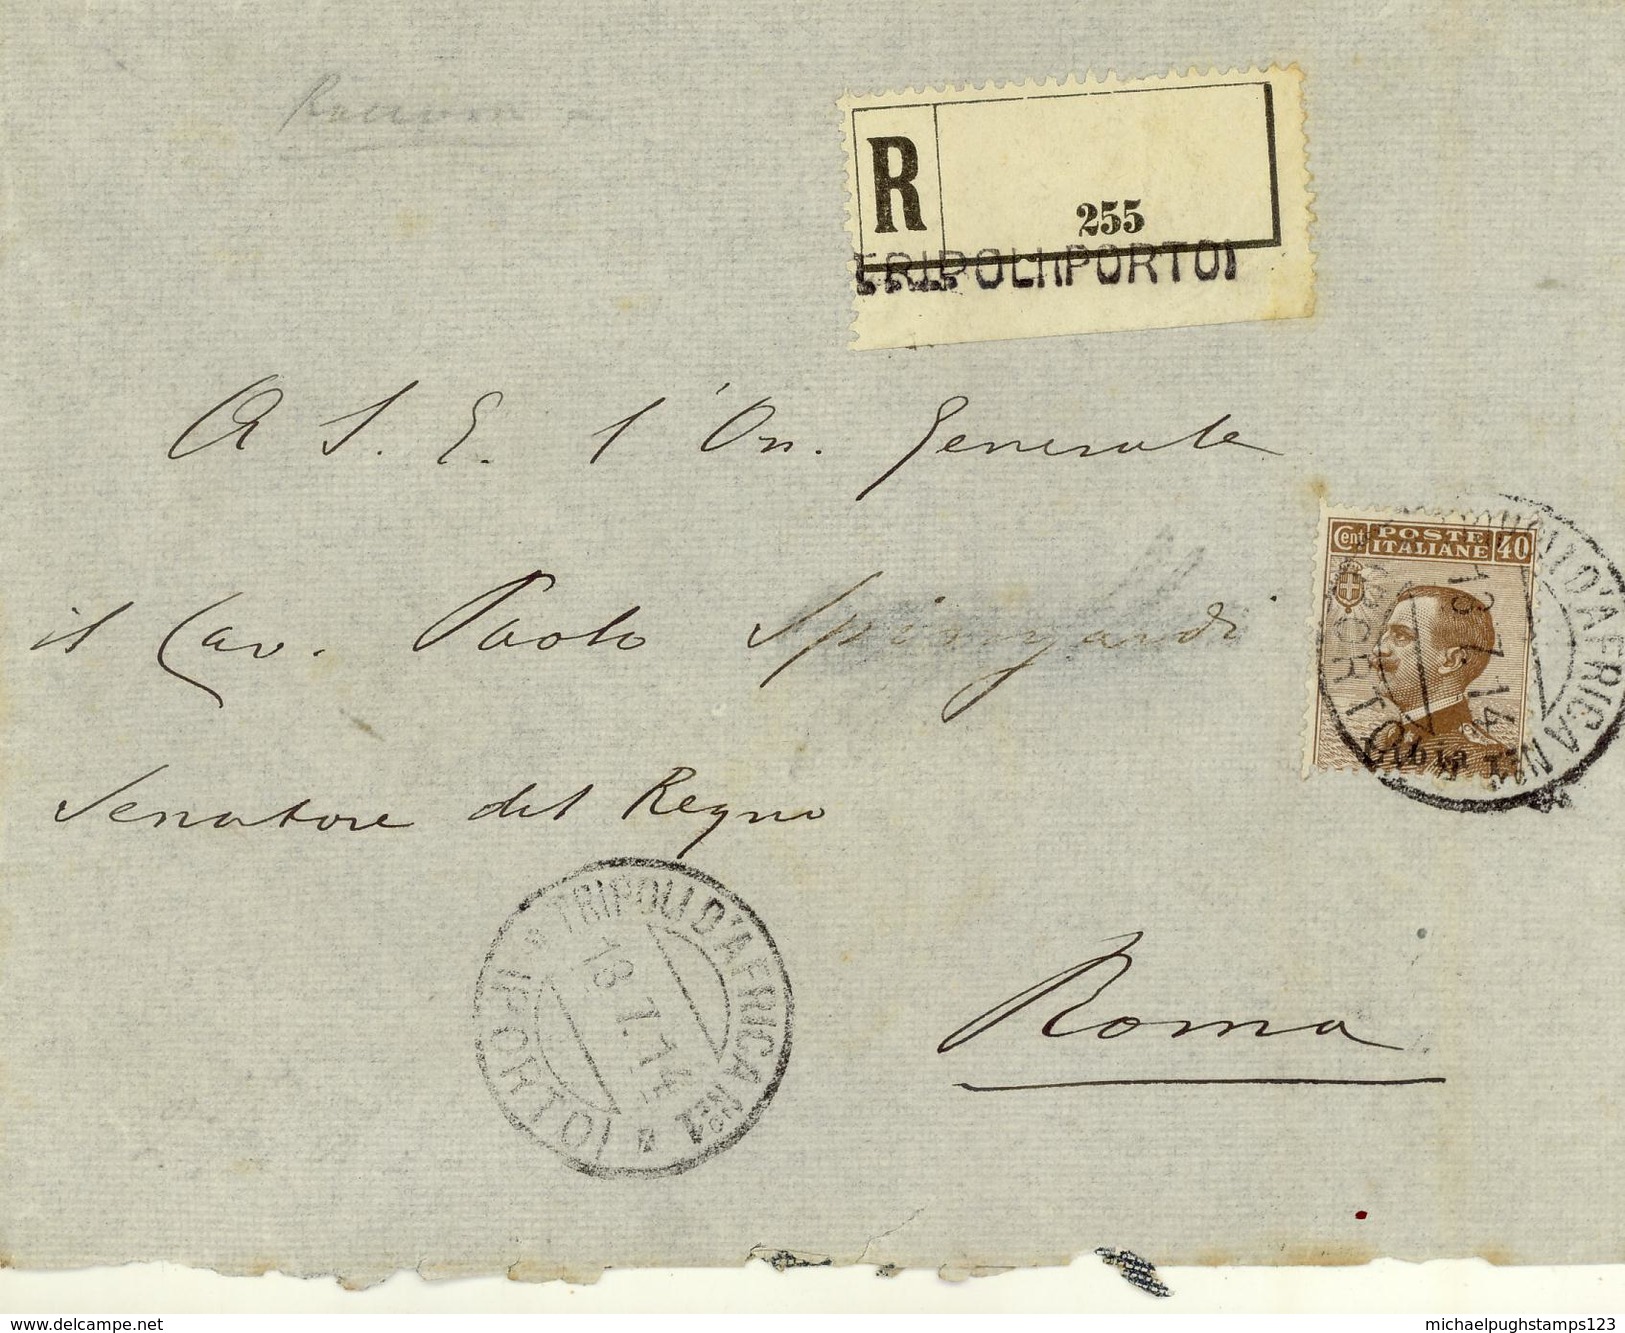 Raccom
R
255
TRIPOLI (PORTO)
A S. E. l'On. Generale
il Cav. Paolo Spingardi
Senatore del Regno
Roma
Cent POSTE ITALIANE 40
Libia
TRIPOLI D'AFRICA No 1
(PORTO)
18.7.14
TRIPOLI D'AFRICA No 1
(PORTO)
18.7.14
www.delcampe.net
michaelpughstamps123